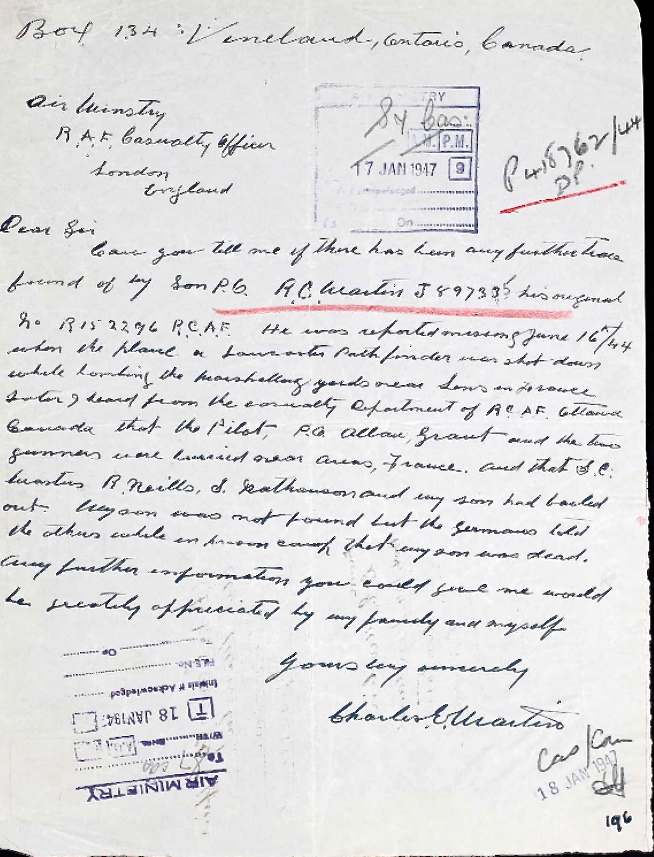 Box 134 : Vineland, Ontario, Canada.
Air Minstry
R.A.F. Casualty Officer
London
England
AIR MINISTRY
S4 Cas:
A.M. P.M.
17 JAN 1947 9
Acknowledged
To On
P418762/44
DP.
Dear Sir
Can you tell me if there has been any further trace
found of my Son P.O. R.C. Martin J89733? his original
No R152296 R.C.A.F. He was reported missing June 16th/44
when the plane a Lancaster Pathfinder was shot down
while bombing the marshelling yards near Lens in France
Later I heard from the casualty Department of R.C.AF. Ottawa
Canada that the Pilot, P.O. Allan, Grant and the two
gunners were buried near Arras, France. and that
R. Neills, S. Nathanson and my son had bailed
out. My son was not found but the Germans told
the others while in prison camp that my son was dead.
Any further information you could give me would
be greately appreciated by my family and myself
Yours very sincerely
Charles E. Martin
AIR MINISTRY
To
WITH Encs.
18 JAN 194 T
Initials if Acknowledged
FILE No.
To On
Cas/Com
18 JAN 1947
196